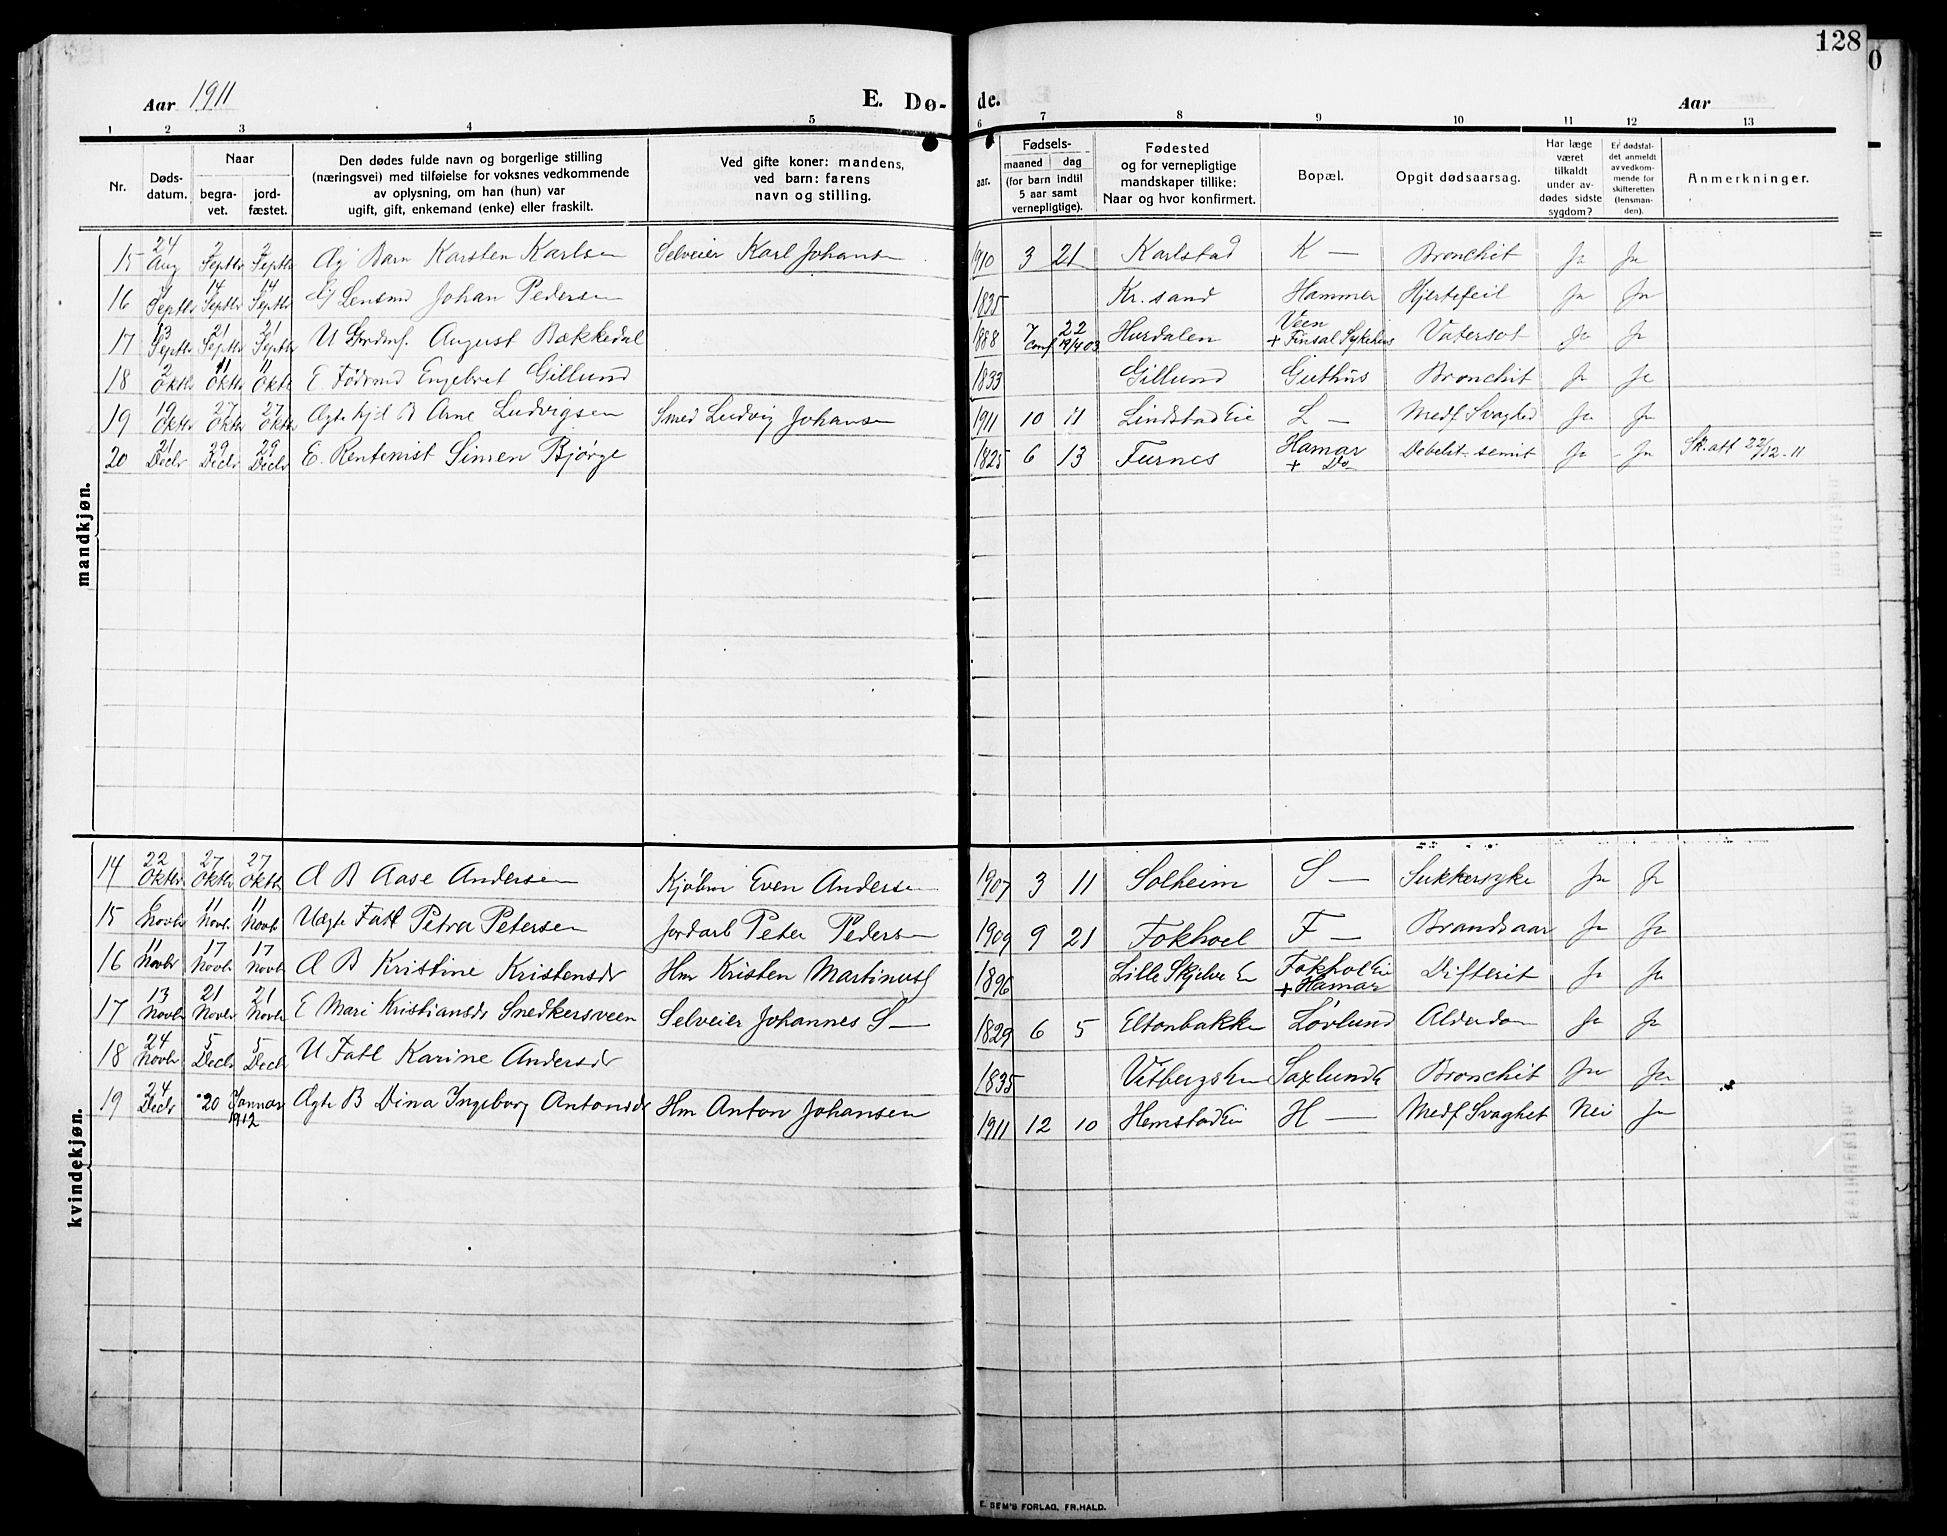 128
0
Aar 1911
E. Dø-
de.
Aar
1 2 3 4 5 6 7 8 9 10 11 12 13
Nr.
Døds-
datum.
Naar
begra-
vet.
jord-
fæstet.
Den dødes fulde navn og borgerlige stilling
(næringsvei) med tilføielse for voksnes vedkommende
av oplysning, om han (hun) var
ugift, gift, enkemand (enke) eller fraskilt.
Ved gifte koner: mandens,
ved barn: farens
navn og stilling.
Fødsels-
aar.
maaned
dag
(for barn indtil
5 aar samt
vernepligtige).
Fødested
og for vernepligtige
mandskaper tillike:
Naar og hvor konfirmert.
Bopæl.
Opgit dødsaarsag.
Har læge
været
tilkaldt
under av-
dødes sidste
sygdom?
Er dødsfal-
det anmeldt
av vedkom-
mende for
skifteretten
(lensman-
den).
Anmerkninger.
mandkjøn.
15 24 Aug 2 Septbr 2 Septbr Æg Barn Karsten Karlsen Selveier Karl Johans 1910 3 21 Karlstad K — Bronchit Ja Ja
16 Septbr 14 Septbr 14 Septbr Johan Pedersen 1835 Kr.sand Hammer Hjertefeil Ja Ja
17 13 Septbr 21 Septbr 21 Septbr U August Bækkedal 1888 7 22 Hurdalen Veen Vatersot Ja Ja
conf 19/4 03 + Finsal Sykehus
18 2 Oktbr 11 Oktbr 11 Oktbr E. Fødrmd Engebret Gillund 1833 Gillund Guthus Bronchit Ja Ja
19 19 Oktbr 27 Oktbr 27 Oktbr Ægte B Arne Ludvigsen Smed Ludvig Johansen 1911 10 11 Lindstad Eie L — Medf. Svaghed Ja Ja
20 21 Decbr 29 Decbr 29 Decbr E. Rentenist Simen Bjørge 1825 6 13 Furnes Hamar Debelit. senit Ja Ja Sk.att 22/12-11
+ Do
kvindekjøn.
14 22 Oktbr 27 Oktbr 27 Oktbr Æ B Aase Andersen Kjøbm Even Andersen 1907 3 11 Solheim S — Sukkersyke Ja Ja
15 6 Novbr 11 Novbr 11 Novbr Uægte Fatl Petra Petersen Jordarb Peter Pedersen 1909 9 21 Fokhoel F — Brandsaar Ja Ja
16 11 Novbr 17 Novbr 17 Novbr Æ B Kristine Kristensdr Hm Kristen Martinus 1896 Lille Skjelve Ei Fokhol Eie Difterit Ja Ja
+ Hamar
17 13 Novbr 21 Novbr 21 Novbr E Mari Kristiansdr Snedkersveen Selveier Johannes S — 1829 6 5 Eltonbakke Løvlund Alderdom Ja Ja
18 24 Novbr 5 Decbr 5 Decbr U Fatl Karine Andersdr 1835 Saxlund Bronchit Ja Ja
19 24 Decbr 20 Januar Ægte B Dina Ingeborg Antonsdr Hm Anton Johansen 1911 12 10 Hemstad Ei H — Medf. Svaghet Nei Ja
1912
E. SEM'S FORLAG, FR.HALD.